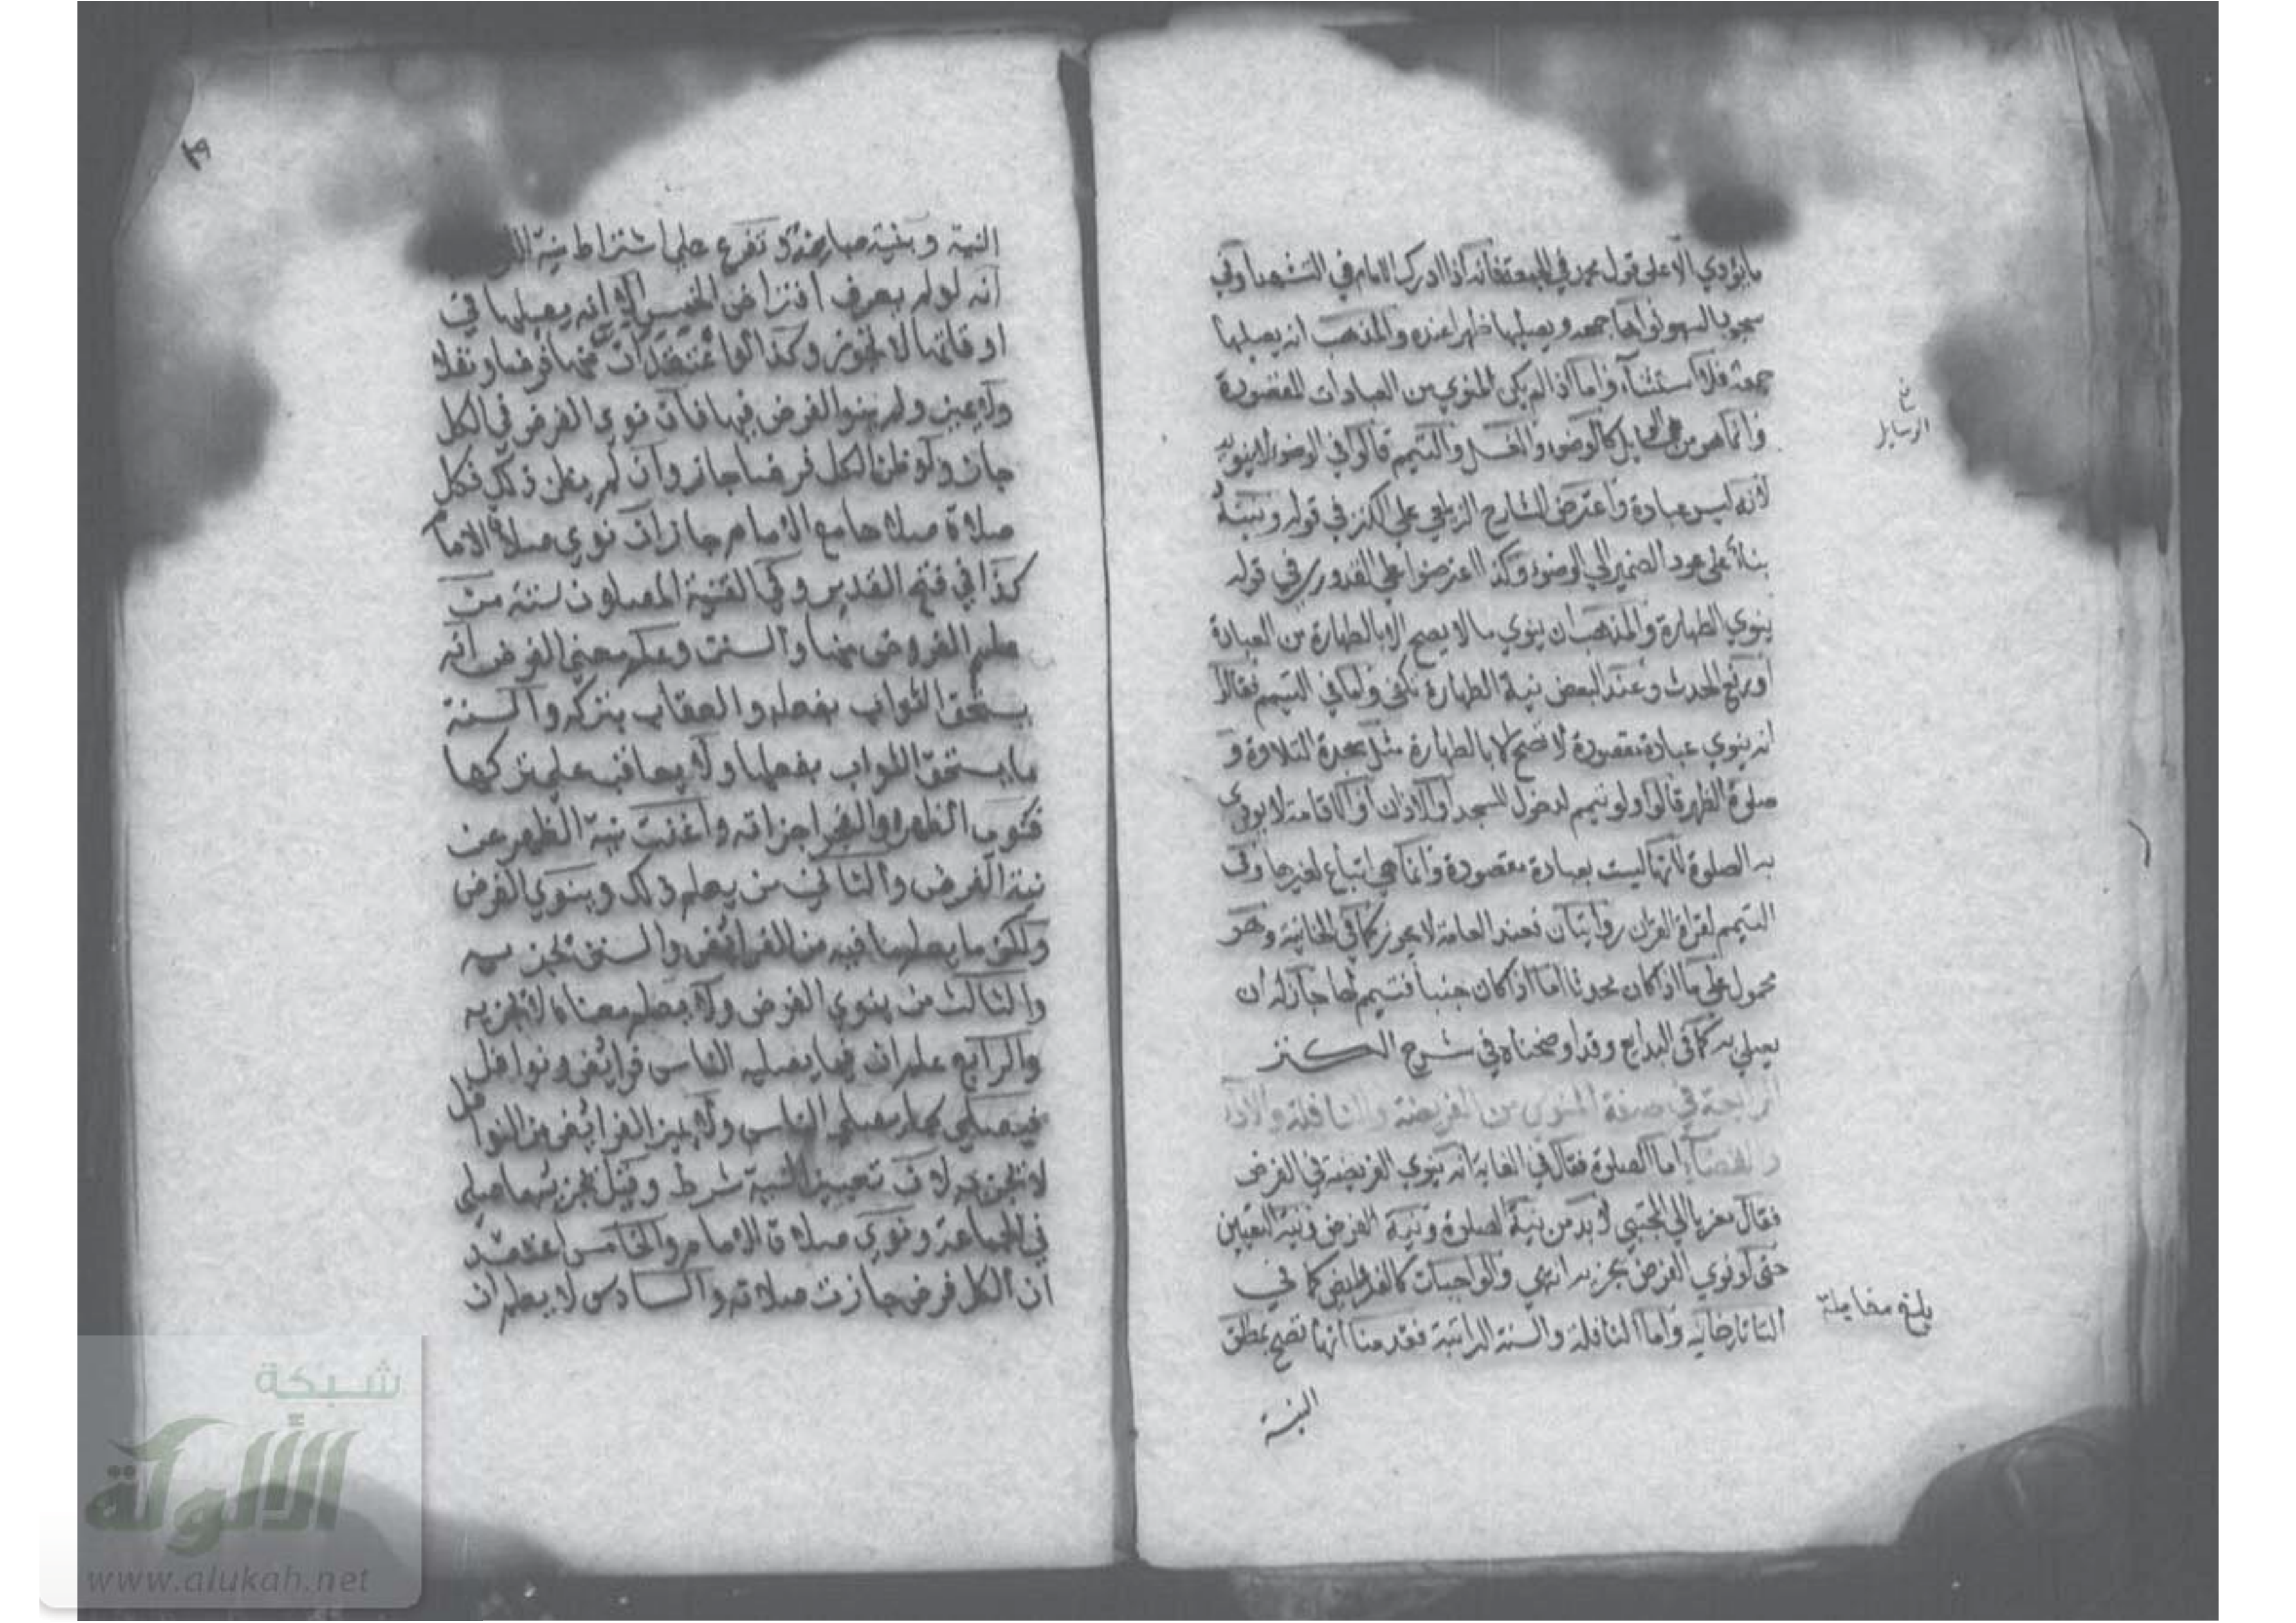 ما يؤدي الا على قول محمد في الجمعة فانه اذا ادرك الامام في التشهد او في
سجود السهو نواها جمعة ويصليها ظهرا عنده والمذهب انه يصليها
جمعة فلا استثناء واما اذا لم يكن المنوي من العبادات المقصودة
وانما هو من كالوضوء والغسل والتيمم قالوا في الوضوء لا ينويه
لانه ليس عبادة واعترض الشارح الزيلعي على الكنز في قوله ونيته
بناء على عود الضمير الي الوضوء وكذا اعترضوا على القدوري في قوله
ينوي الطهارة والمذهب ان ينوي ما لا يصح الا بالطهارة من العبادة
او رفع الحدث وعند البعض نية الطهارة تكفي واما في التيمم فقالوا
انه ينوي عبادة مقصودة لا تصح الا بالطهارة مثل سجدة التلاوة و
صلوة الظهر قالوا ولو تيمم لدخول المسجد او للاذان او الاقامة لا يودي
به الصلوة لانها ليست بعبادة مقصودة وانما هي اتباع لغيرها وفي
التيمم لقراة القران روايتان فعند العامة لا يجوز كما في الخانية وهو
محمول على ما اذا كان محدثا اما اذا كان جنبا فتيمم لها جاز له ان
يصلي به كما في البدايع وقد اوضحناه في شرح الكنز
الرابعة في صفة المنوي من الفريضة والنافلة والادا
والقضاء اما الصلوة فقال في الغاية انه ينوي الفريضة في الفرض
فقال معزيا الي المجتبي لا بد من نية الصلوة ونية الفرض ونية التعيين
حتى لو نوي الفرض يجزيه انتهي والواجبات كالفرايض كما في
التاتارخانيه واما النافلة والسنة الراتبة فقدمنا انها تصح بمطلق
النية
الوسايل
بلغ مقابلة
النية وبنية مباينة وتفرع على اشتراط نية
انه لو لم يعرف افتراض الخمس الا انه يصليها في
اوقاتها لا تجوز وكذا لو اعتقد ان منها فرضا ونفلا
ولا يميز ولم ينوا الفرض فيها فان نوي الفرض في الكل
جاز ولو ظن الكل فرضا جاز وان لم يظن ذلك فكل
صلاة صلاها مع الامام جاز ان نوي صلاة الامام
كذا في فتح القدير وفي القنية المصلون ستة من
علم الفروض منها والسنن وعلم معنى الفرض انه
يستحق الثواب بفعله والعقاب بتركه والسنة
ما يستحق الثواب بفعلها ولا يعاقب على تركها
فنوي الظهر او الفجر اجزاته واغنت نية الظهر عن
نية الفرض والثاني من يعلم ذلك وينوي الفرض
ولكن ما يعلم ما فيه من الفرائض والسنن تجزيه
والثالث من ينوي الفرض ولا يعلم معناه لا تجزيه
والرابع علم ان فيما يصليه الناس فرائض ونوافل
فيصلي كما يصلي الناس ولا يميز الفرائض من النوافل
لا تجزيه لان تعيين النية شرط وقيل تجزيه ما صلى
في الجماعة ونوي صلاة الامام والخامس اعتقد
ان الكل فرض جازت صلاته والسادس لا يعلم ان
شبكة
الألوكة
www.alukah.net